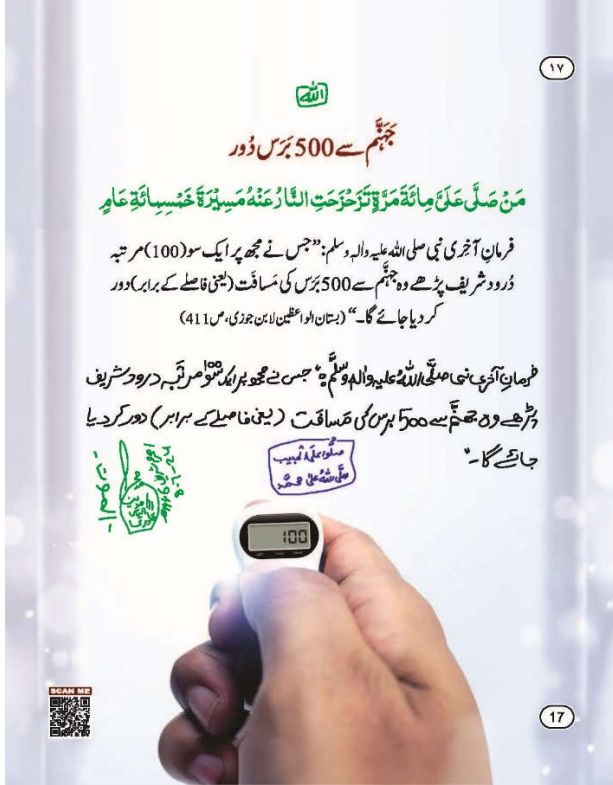 ۱۷
الله
جَہَنَّم سے 500 بَرَس دُور
مَنْ صَلَّى عَلَىَّ مِائَةَ مَرَّةٍ تَزَحْزَحَتِ النَّارُ عَنْهُ مَسِيْرَةَ خَمْسِمِائَةِ عَامٍ
فرمانِ آخِری نبی صلی اللہ علیہ واٰلہٖ وسلم: ”جس نے مجھ پر ایک سو (100) مرتبہ
دُرود شریف پڑھے وہ جہنَّم سے 500 بَرَس کی مَسافَت (یعنی فاصلے کے برابر) دور
کر دیا جائے گا۔“ (بستان الواعظین لابن جوزی، ص411)
فرمانِ آخری نبی صلَّی اللہُ علیہ واٰلہٖ وسلَّم: ”جس نے مجھ پر ایک سو 100 مرتَبہ درود شریف
پڑھے وہ جھنَّم سے 500 برس کی مَسافت (یعنی فاصلے کے برابر) دور کر دیا
جائے گا۔“
صلُّوا علَی الْحبیب
صلَّی اللہُ علٰی محمَّد
الموت
100
SCAN ME
17